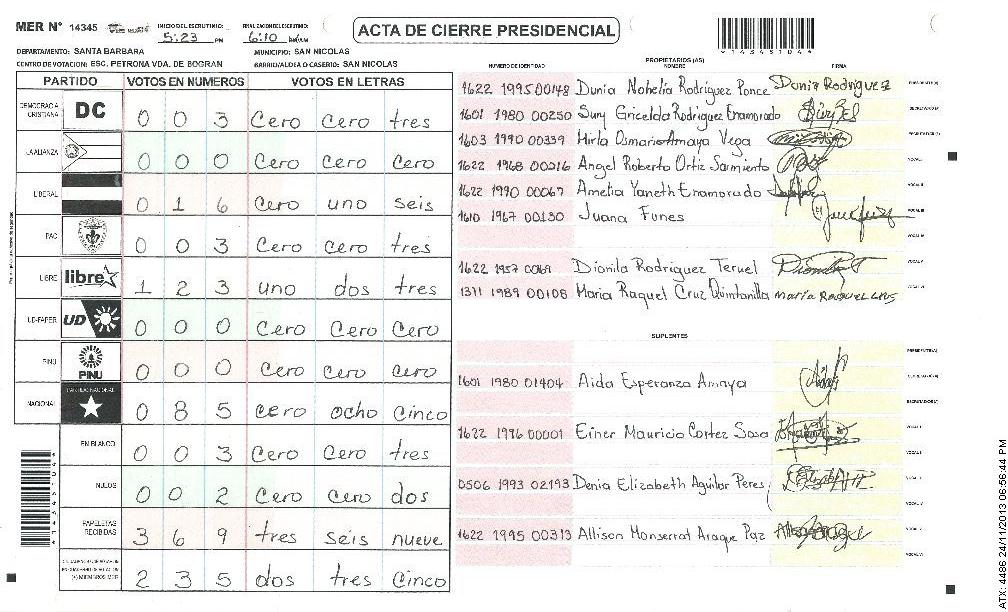 MER N° 14345
INICIO DEL ESCRUTINIO: 5:23 PM
FINALIZACION DEL ESCRUTINIO: 6:10
ACTA DE CIERRE PRESIDENCIAL
DEPARTAMENTO: SANTA BARBARA
MUNICIPIO: SAN NICOLAS
CENTRO DE VOTACION: ESC. PETRONA VDA. DE BOGRAN
BARRIO/ALDEA O CASERIO: SAN NICOLAS
PARTIDO VOTOS EN NUMEROS VOTOS EN LETRAS
DEMOCRACIA CRISTIANA DC 0 0 3 Cero Cero tres
LA ALIANZA 0 0 0 Cero Cero Cero
LIBERAL 0 1 6 Cero uno seis
PAC 0 0 3 Cero Cero tres
LIBRE libre 1 2 3 uno dos tres
UD-FAPER UD 0 0 0 Cero Cero Cero
PINU PINU 0 0 0 Cero Cero Cero
NACIONAL PARTIDO NACIONAL 0 8 5 Cero ocho Cinco
EN BLANCO 0 0 3 Cero Cero tres
NULOS 0 0 2 Cero Cero dos
PAPELETAS RECIBIDAS 3 6 9 tres seis nueve
(+) MIEMBROS MER 2 3 5 dos tres Cinco
PROPIETARIOS (AS)
NUMERO DE IDENTIDAD NOMBRE FIRMA
1622 1995 00148 Dunia Nohelia Rodriguez Ponce Dunia Rodriguez
1601 1980 00250 Sury Gricelda Rodriguez Enamorado
1603 1990 00339 Mirla Osmari Amaya Vega
1622 1968 00216 Angel Roberto Ortiz Sarmiento
1622 1990 00067 Amelia Yaneth Enamorado
1610 1967 00130 Juana Funes
1622 1957 Dionila Rodriguez Teruel
1311 1989 00108 Maria Raquel Cruz Quintanilla maria Raquel
SUPLENTES
1601 1980 01404 Aida Esperanza Amaya
1622 1996 00001 Einer Mauricio Cortez Sosa
0506 1993 02193 Denia Elizabeth Aguilar Peres
1622 1995 00313 Allison Monserrat Araque Paz
ATX: 4486 24/11/2013 06:56:44 PM